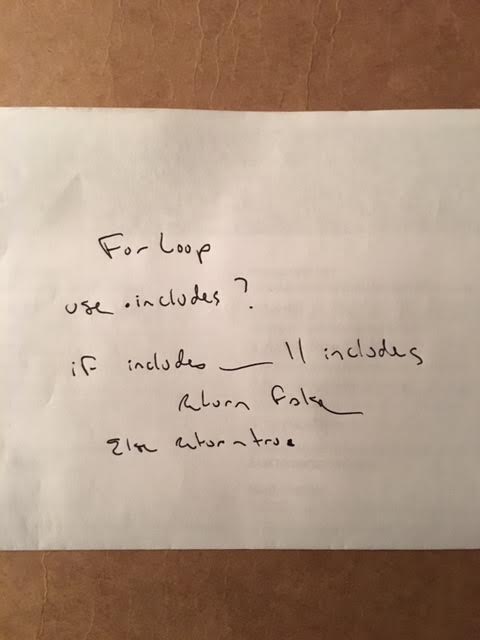 For Loop
use .includes ?
if includes __ || includes
return false
Else return true